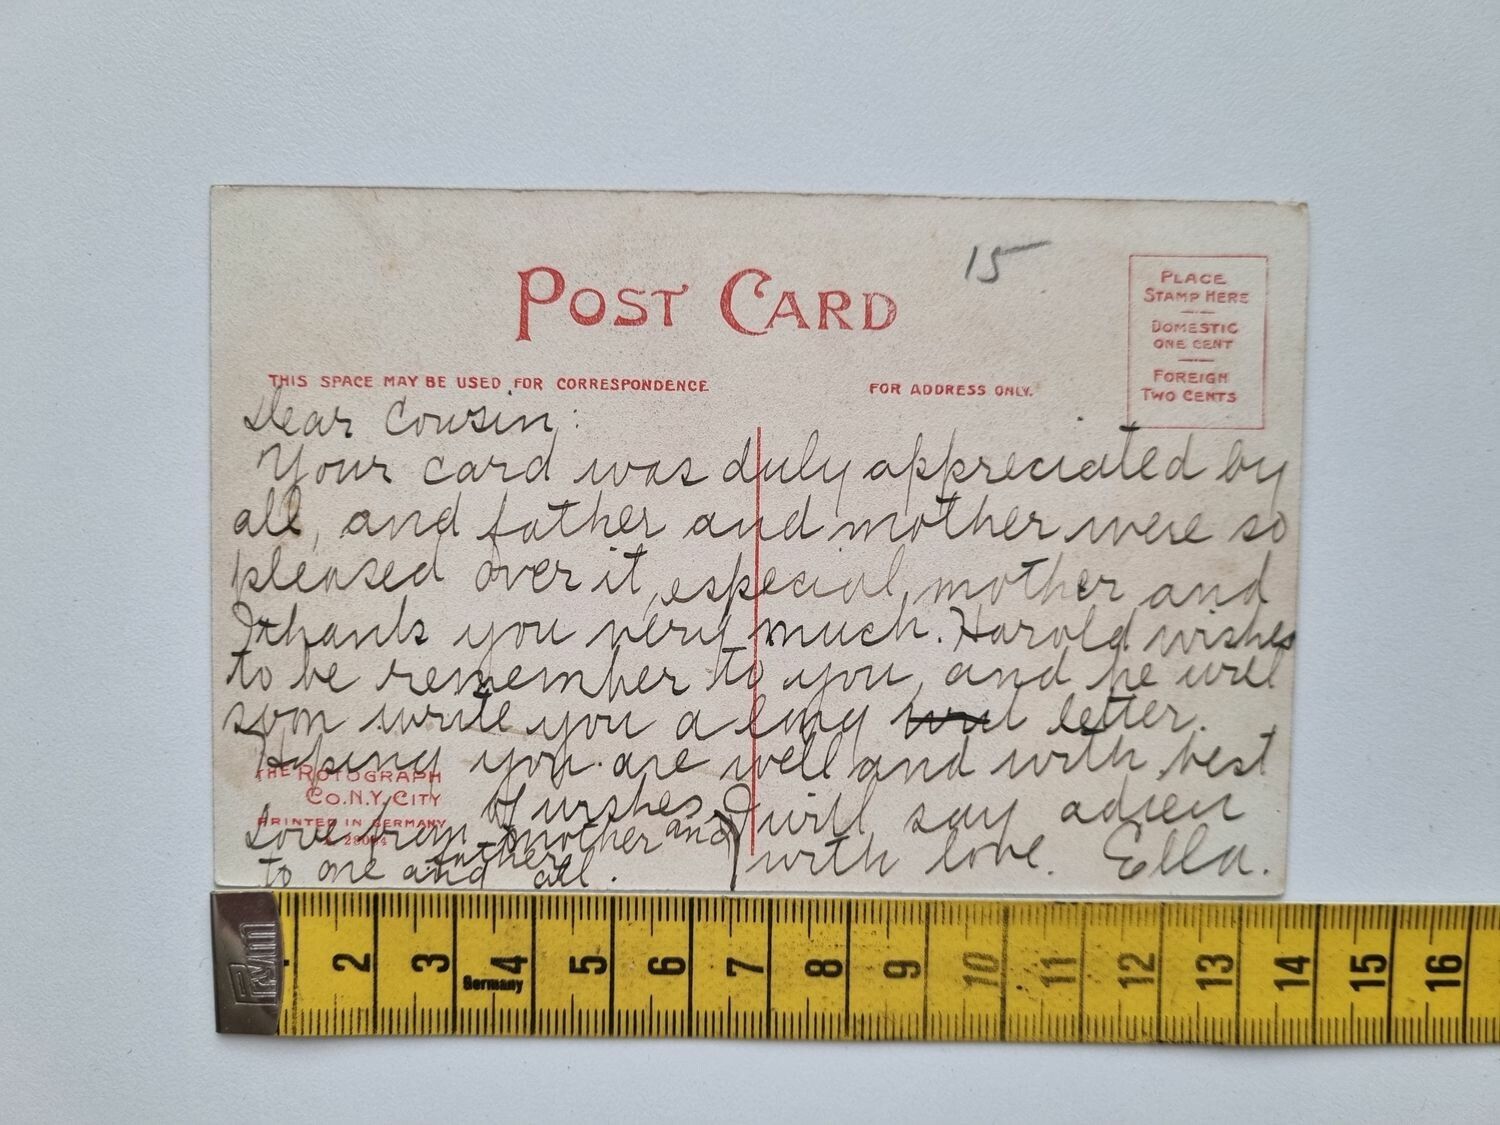 15
POST CARD
PLACE
STAMP HERE
DOMESTIC
ONE CENT
FOREIGN
TWO CENTS
THIS SPACE MAY BE USED FOR CORRESPONDENCE
FOR ADDRESS ONLY.
Dear Cousin:
Your card was duly appreciated by
all, and father and mother were so
pleased over it, especial, mother and
I thank you very much. Harold wishes
to be remember to you, and he will
soon write you a long letter.
Hoping you are well and with best
of wishes, I will say adieu
with love. Ella.
Love from mother and
father
to one and all.
THE ROTOGRAPH
CO. N.Y. CITY
PRINTED IN GERMANY
Prym
2 3 4 5 6 7 8 9 10 11 12 13 14 15 16
Germany